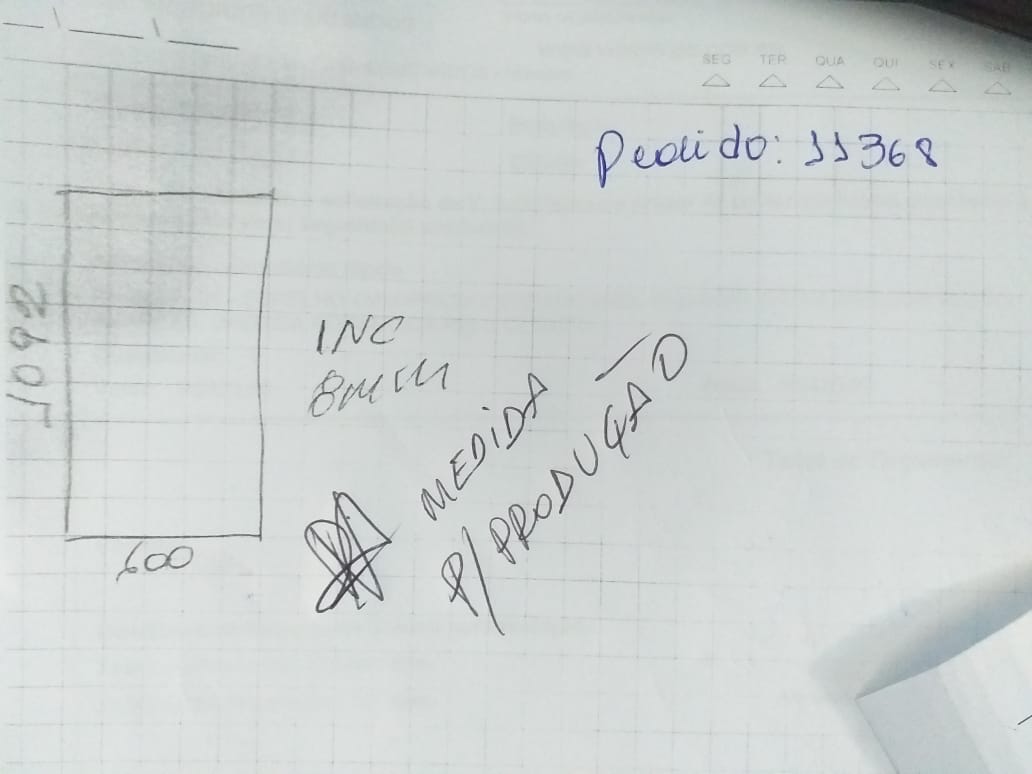 SEG TER QUA QUI SEX SAB
Pedido: 11368
1092
INC
8mm
MEDIDA
P/ PRODUÇÃO
600